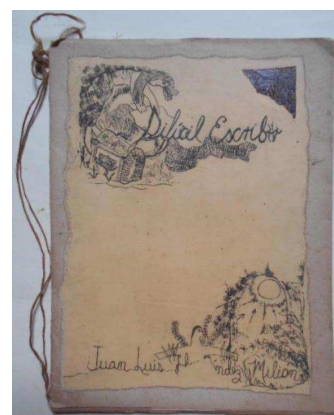 Difícil Escribir
Juan Luis Hernández Milian